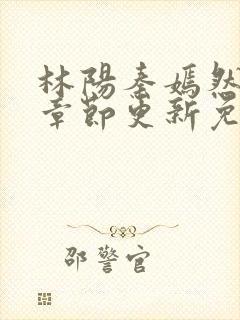 林陽秦嫣然
章節更新免
邵警官